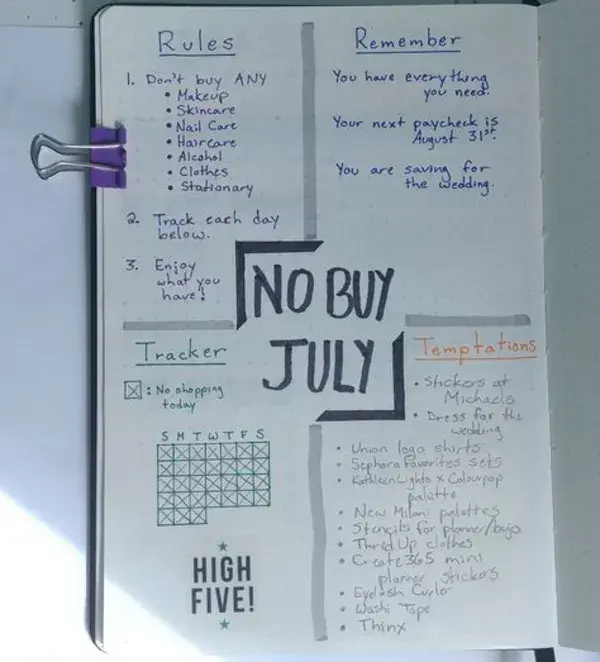 Rules
1. Don't buy ANY
• Makeup
• Skincare
• Nail Care
• Haircare
• Alcohol
• Clothes
• Stationary
2. Track each day
below.
3. Enjoy
what you
have!
Remember
You have everything
you need.
Your next paycheck is
August 31st.
You are saving for
the wedding.
NO BUY
JULY
Tracker
: No shopping
today
S M T W T F S
HIGH
FIVE!
Temptations
• Stickers at
Michaels
• Dress for the
wedding
• Union logo shirts
• Sephora Favorites sets
• KathleenLights x Colourpop
palette
• New Milani palettes
• Stencils for planner/bujo
• ThredUp clothes
• Create 365 mini
planner stickers
• Eyelash Curler
• Washi Tape
• Thinx